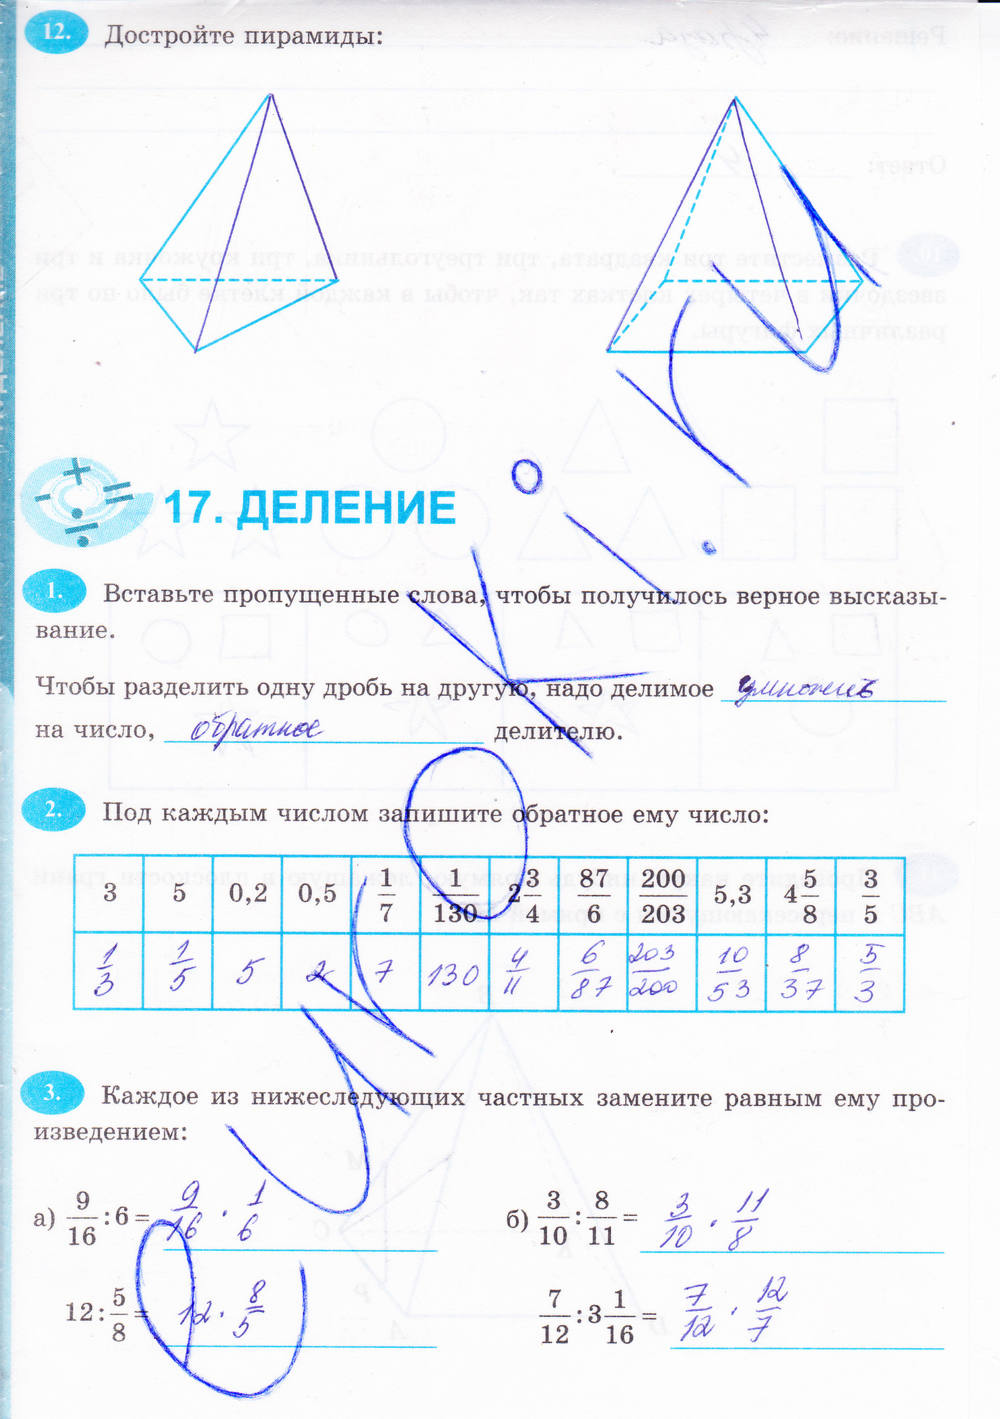 12. Достройте пирамиды:
17. ДЕЛЕНИЕ
1. Вставьте пропущенные слова, чтобы получилось верное высказы-
вание.
Чтобы разделить одну дробь на другую, надо делимое умножить
на число, обратное делителю.
2. Под каждым числом запишите обратное ему число:
3 5 0,2 0,5 1/7 1/130 2 3/4 87/6 200/203 5,3 4 5/8 3/5
1/3 1/5 5 2 7 130 4/11 6/87 203/200 10/53 8/37 5/3
3. Каждое из нижеследующих частных замените равным ему про-
изведением:
а) 9/16 : 6 = 9/16 · 1/6 б) 3/10 : 8/11 = 3/10 · 11/8
12 : 5/8 = 12 · 8/5 7/12 : 3 1/16 = 7/12 · 12/7